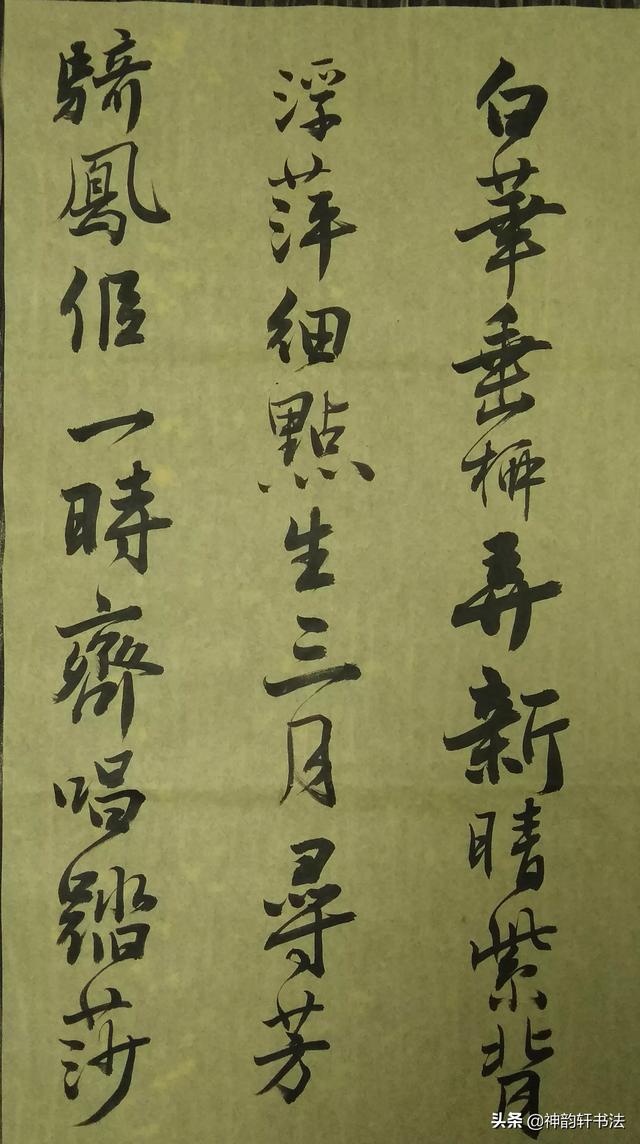 白華垂柳弄新晴紫背
浮萍細點生三月尋芳
騎鳳侶一時齊唱踏莎
头条 @神韵轩书法